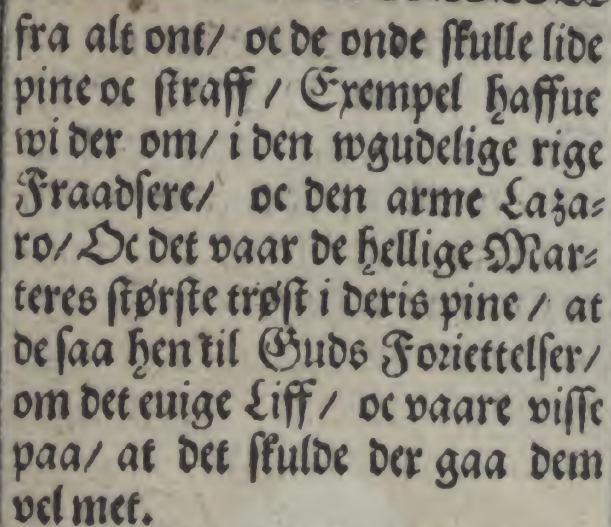 fra alt ont/ oc de onde skulle lide
pine oc straff / Exempel haffue
wi der om/ i den wgudelige rige
Fraadsere/ oc den arme Laza⸗
ro/ Oc det vaar de hellige Mar⸗
teres største trøst i deris pine / at
de saa hen til Guds Foriettelser/
om det euige Liff / oc vaare visse
paa/ at det skulde der gaa dem
vel met.